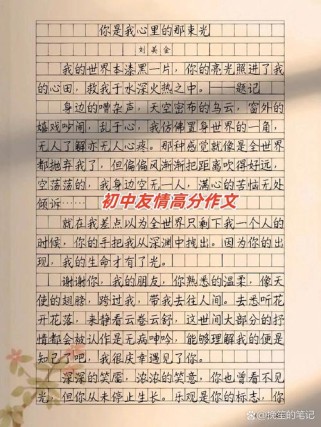 你是我心里的那束光
刘美含
我的世界本漆黑一片，你的亮光照进了我
的心田，救我于水深火热之中。——题记
身边的嘈杂声，天空密布的乌云，窗外的
嬉戏吵闹，乱于心，我仿佛置身世界的一角，
无人了解亦无人心疼。那种感觉就像是全世界
都抛弃了我，但偏偏风渐渐把距离吹得好远，
空荡荡的，我身边空无一人，满心的苦恼无处
倾诉……
初中友情高分作文
就在我差点以为全世界只剩下我一个人的
时候，你的手把我从深渊中拽出。因为你的出
现，我的生命才有了光。
谢谢你，我的朋友，你熟悉的温柔，像天
使的翅膀，跨过我，带我去往人间。去悉听花
开花落，来静看云卷云舒，这世间大部分的抒
情都会被认作是无病呻吟，能够理解我的便是
知己了吧，我很庆幸遇见了你。
深深的笑靥，浓浓的笑意，你也曾看不见
光，但你从未停止生长。乐观是你的标志，你
的笔记